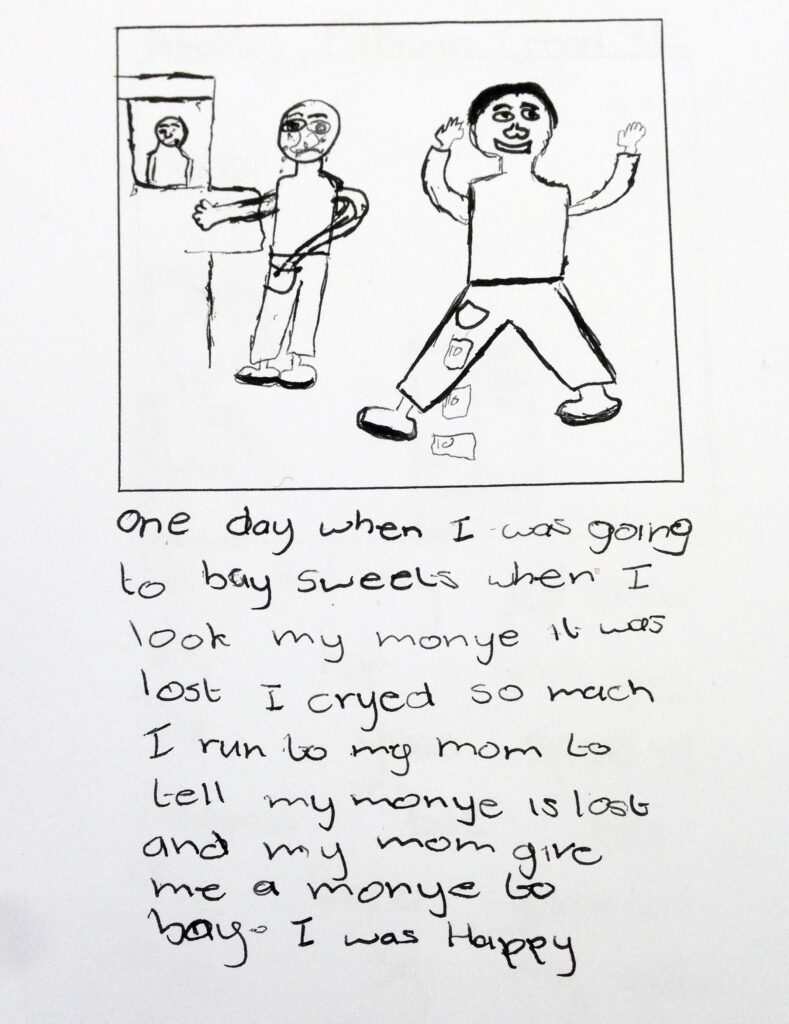 10
10
10
One day when I was going
to bay sweets when I
look my monye it was
lost I cryed so mach
I run to my mom to
tell my monye is lost
and my mom give
me a monye to
bay. I was Happy